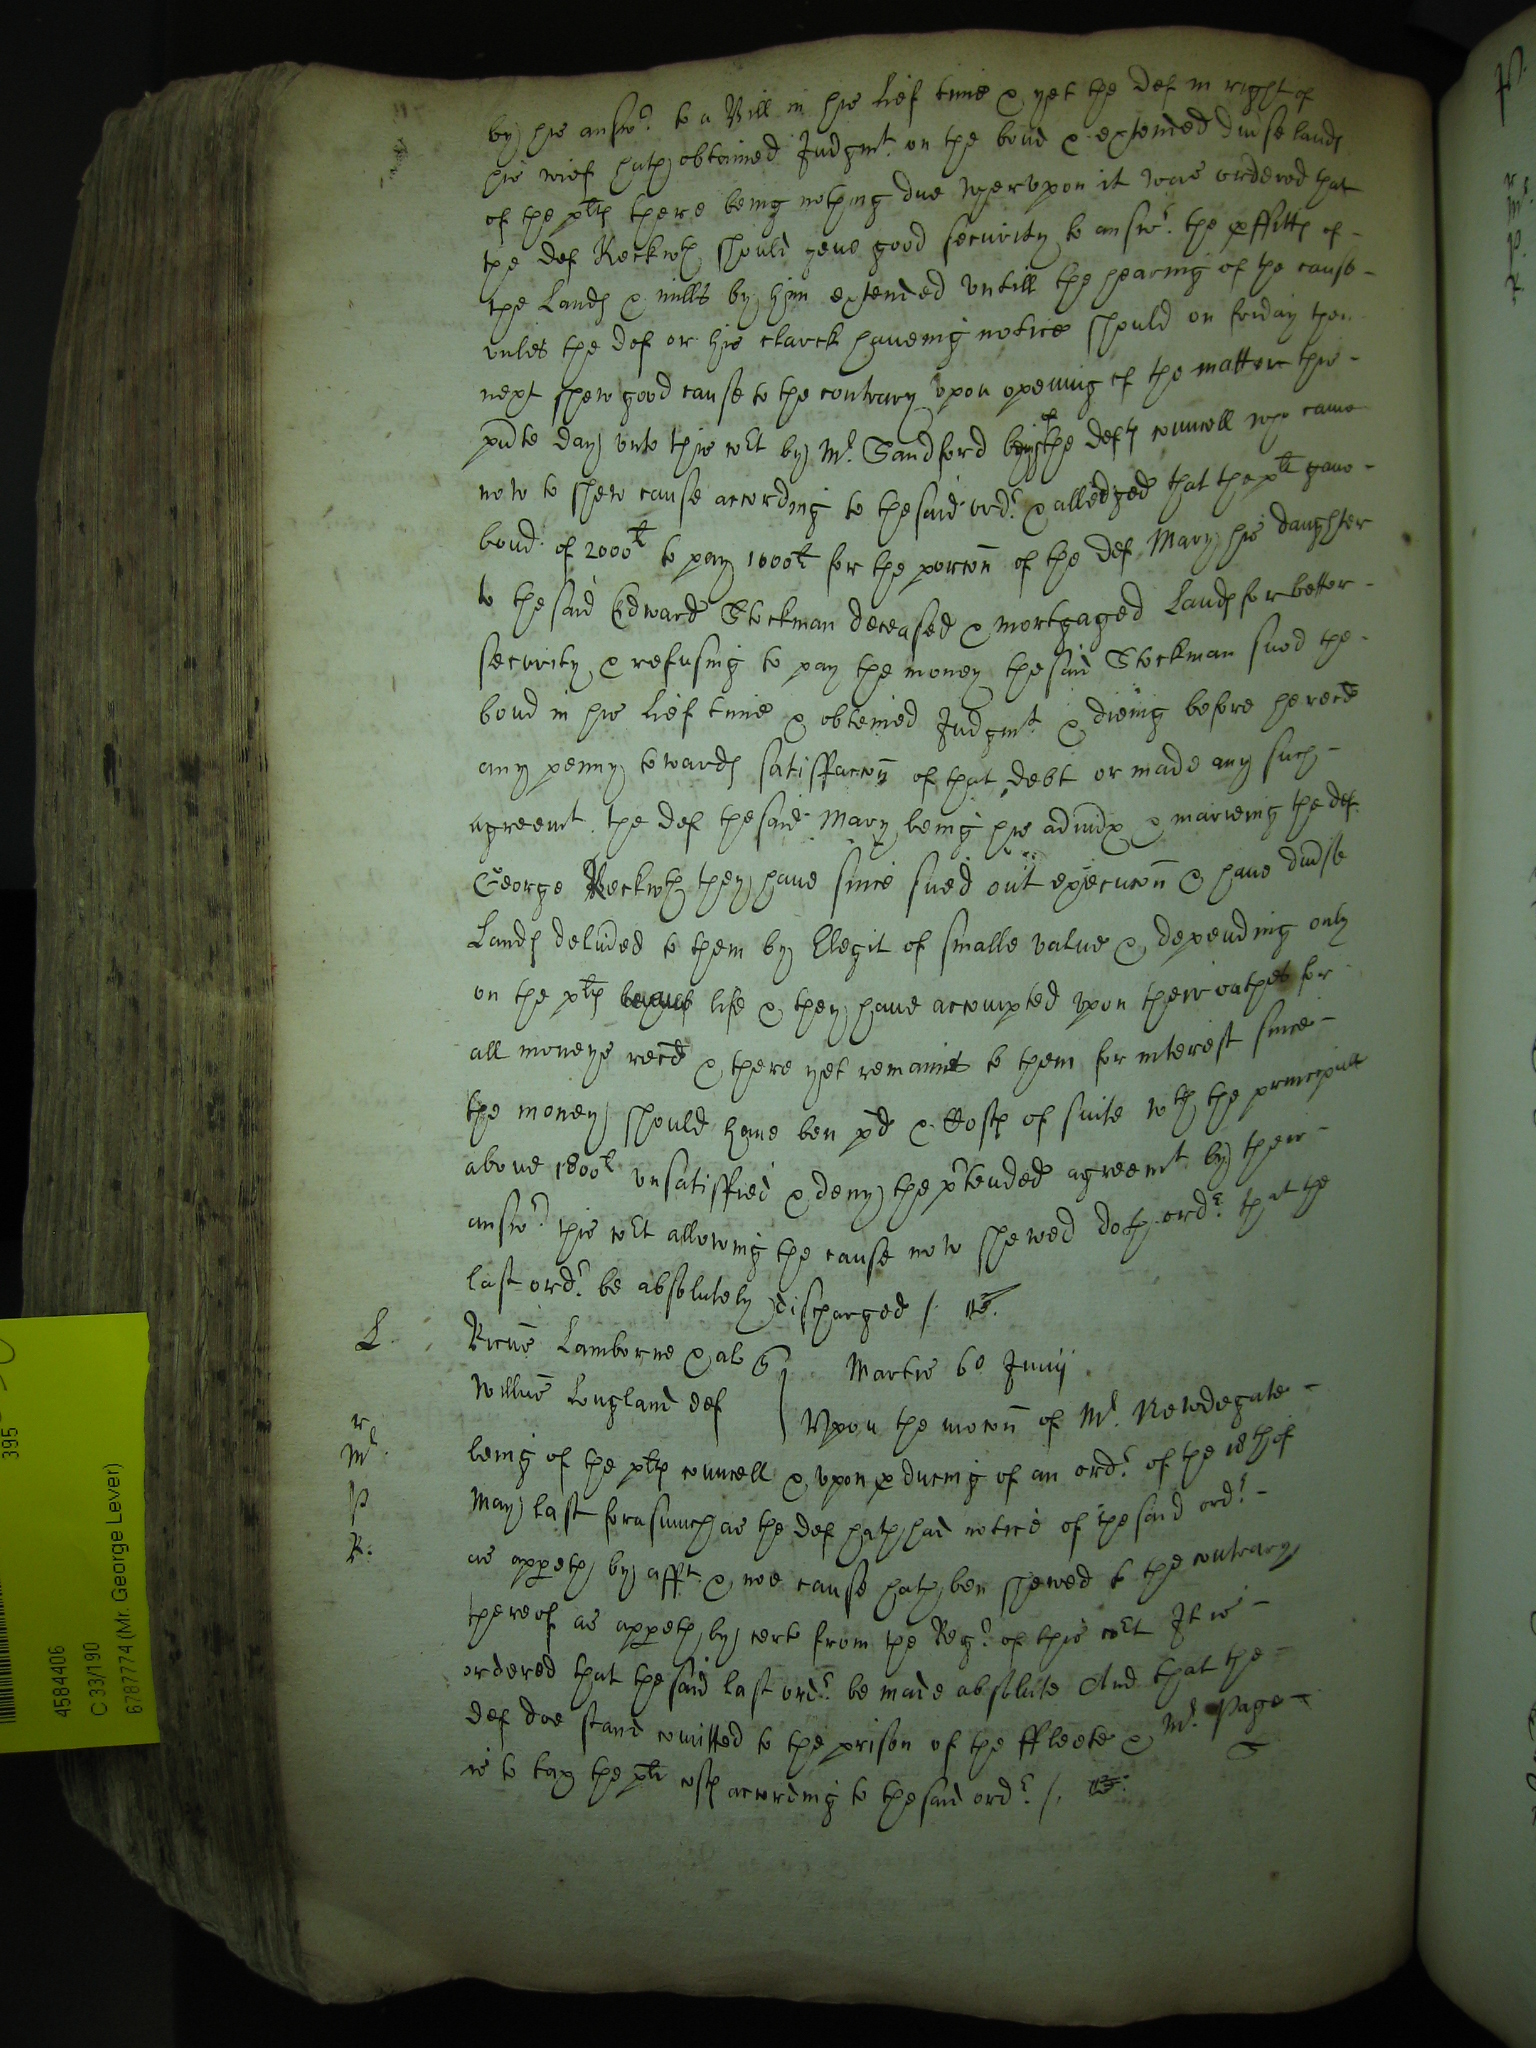 by his answr. to a Bill in his lief time & yet the Def in right of
his wief hath obtained Judgmt. on the bond & extended divse lands
of the plts there being nothing due wherupon it was ordered that
the def Beckwth should geve good security to answr. the pffitts of
the Lands & mills by him extended untill the hearing of the cause
unles the def or his clarck haveing notice should on friday then
next shew good cause to the contrary upon opening of the matter this
pnte day unto this cort by Mr. Sandford being of the defts councell who came
now to shew cause according to the said ordr. & alledged that the plt gave
bond of 2000li to pay 1000li for the porcon of the def Mary his daughter
to the said Edward Stockman deceased & mortgaged Lands for better
security & refusing to pay the money the said Stockman sued the
bond in his lief time & obteined Judgmt. & dieing before he recd
any penny towards satisfaccon of that debt or made any such
agreemt. the def the said Mary being his admx & marieing the def.
George Beckwth they have since sued out execucon & have divse
Lands delivded to them by Elegit of smalle value & depending only
on the plts life & they have accompted upon their oathes for
all moneys recd & there yet remaines to them for interest since
the money should have ben pd & Costs of suite wth the principall
above 1800li unsatisfied & deny the prtended agreemt. by their
answr. this cort allowing the cause now shewed doth ordr. that the
last ordr. be absolutely discharged /.
L. Ricus Lamborne & al q
Martis 6o Junij
Willus Longland def
Upon the mocon of Mr. Newdegate
r
being of the plts councell & upon pducing of an ordr. of the 18th of
Mr.
May last forasmuch as the def hath had notice of the said ordr.
P
as appeth by afft. & noe cause hath ben shewed to the contrary
R.
thereof as appeth by certe from the Regr. of this cort It is
ordered that the said last ordr. be made absolute And that the
def doe stand comitted to the prison of the ffleete & Mr. Page
is to tax the plt costs according to the said ordr. /.
395
4584406
C 33/190
6787774 (Mr. George Lever)